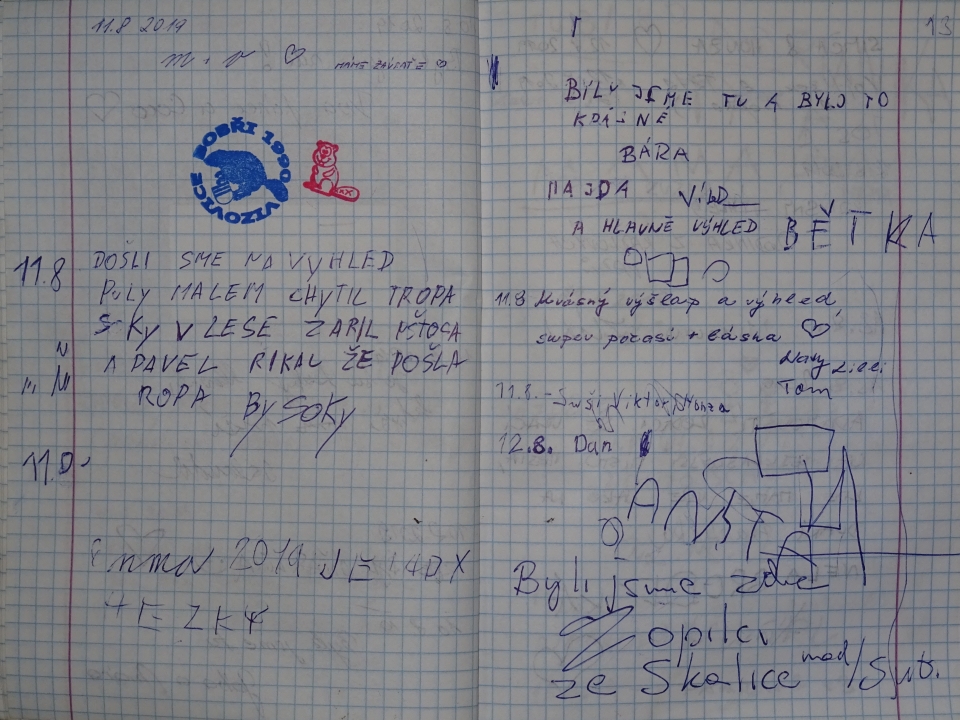 11.8 2019
m + v ♡ MÁME ZÁVRAŤE
BOBŘI 1990 VIZOVICE
11.8 DOŠLI SME NA VYHLED
PULY MALEM CHYTIL TROPA
SKY V LESE ZARIL
A PAVEL RIKAL ŽE DOŠLA
ROPA BY SOKY
11.
Emma 2019 JE 14D X
TEZKY
13
BYLY JSME TU A BYLO TO
KRÁSNÉ
BÁRA
MAJDA VÍŤA
A HLAVNĚ VÝHLED BĚTKA
11.8 Krásný výšlap a výhled
super počasí + láska ♡
Tom
11.8. - Viktor, Honza
12.8. Dan
Byli jsme zde
opilci
ze Skalice nad/Svit.